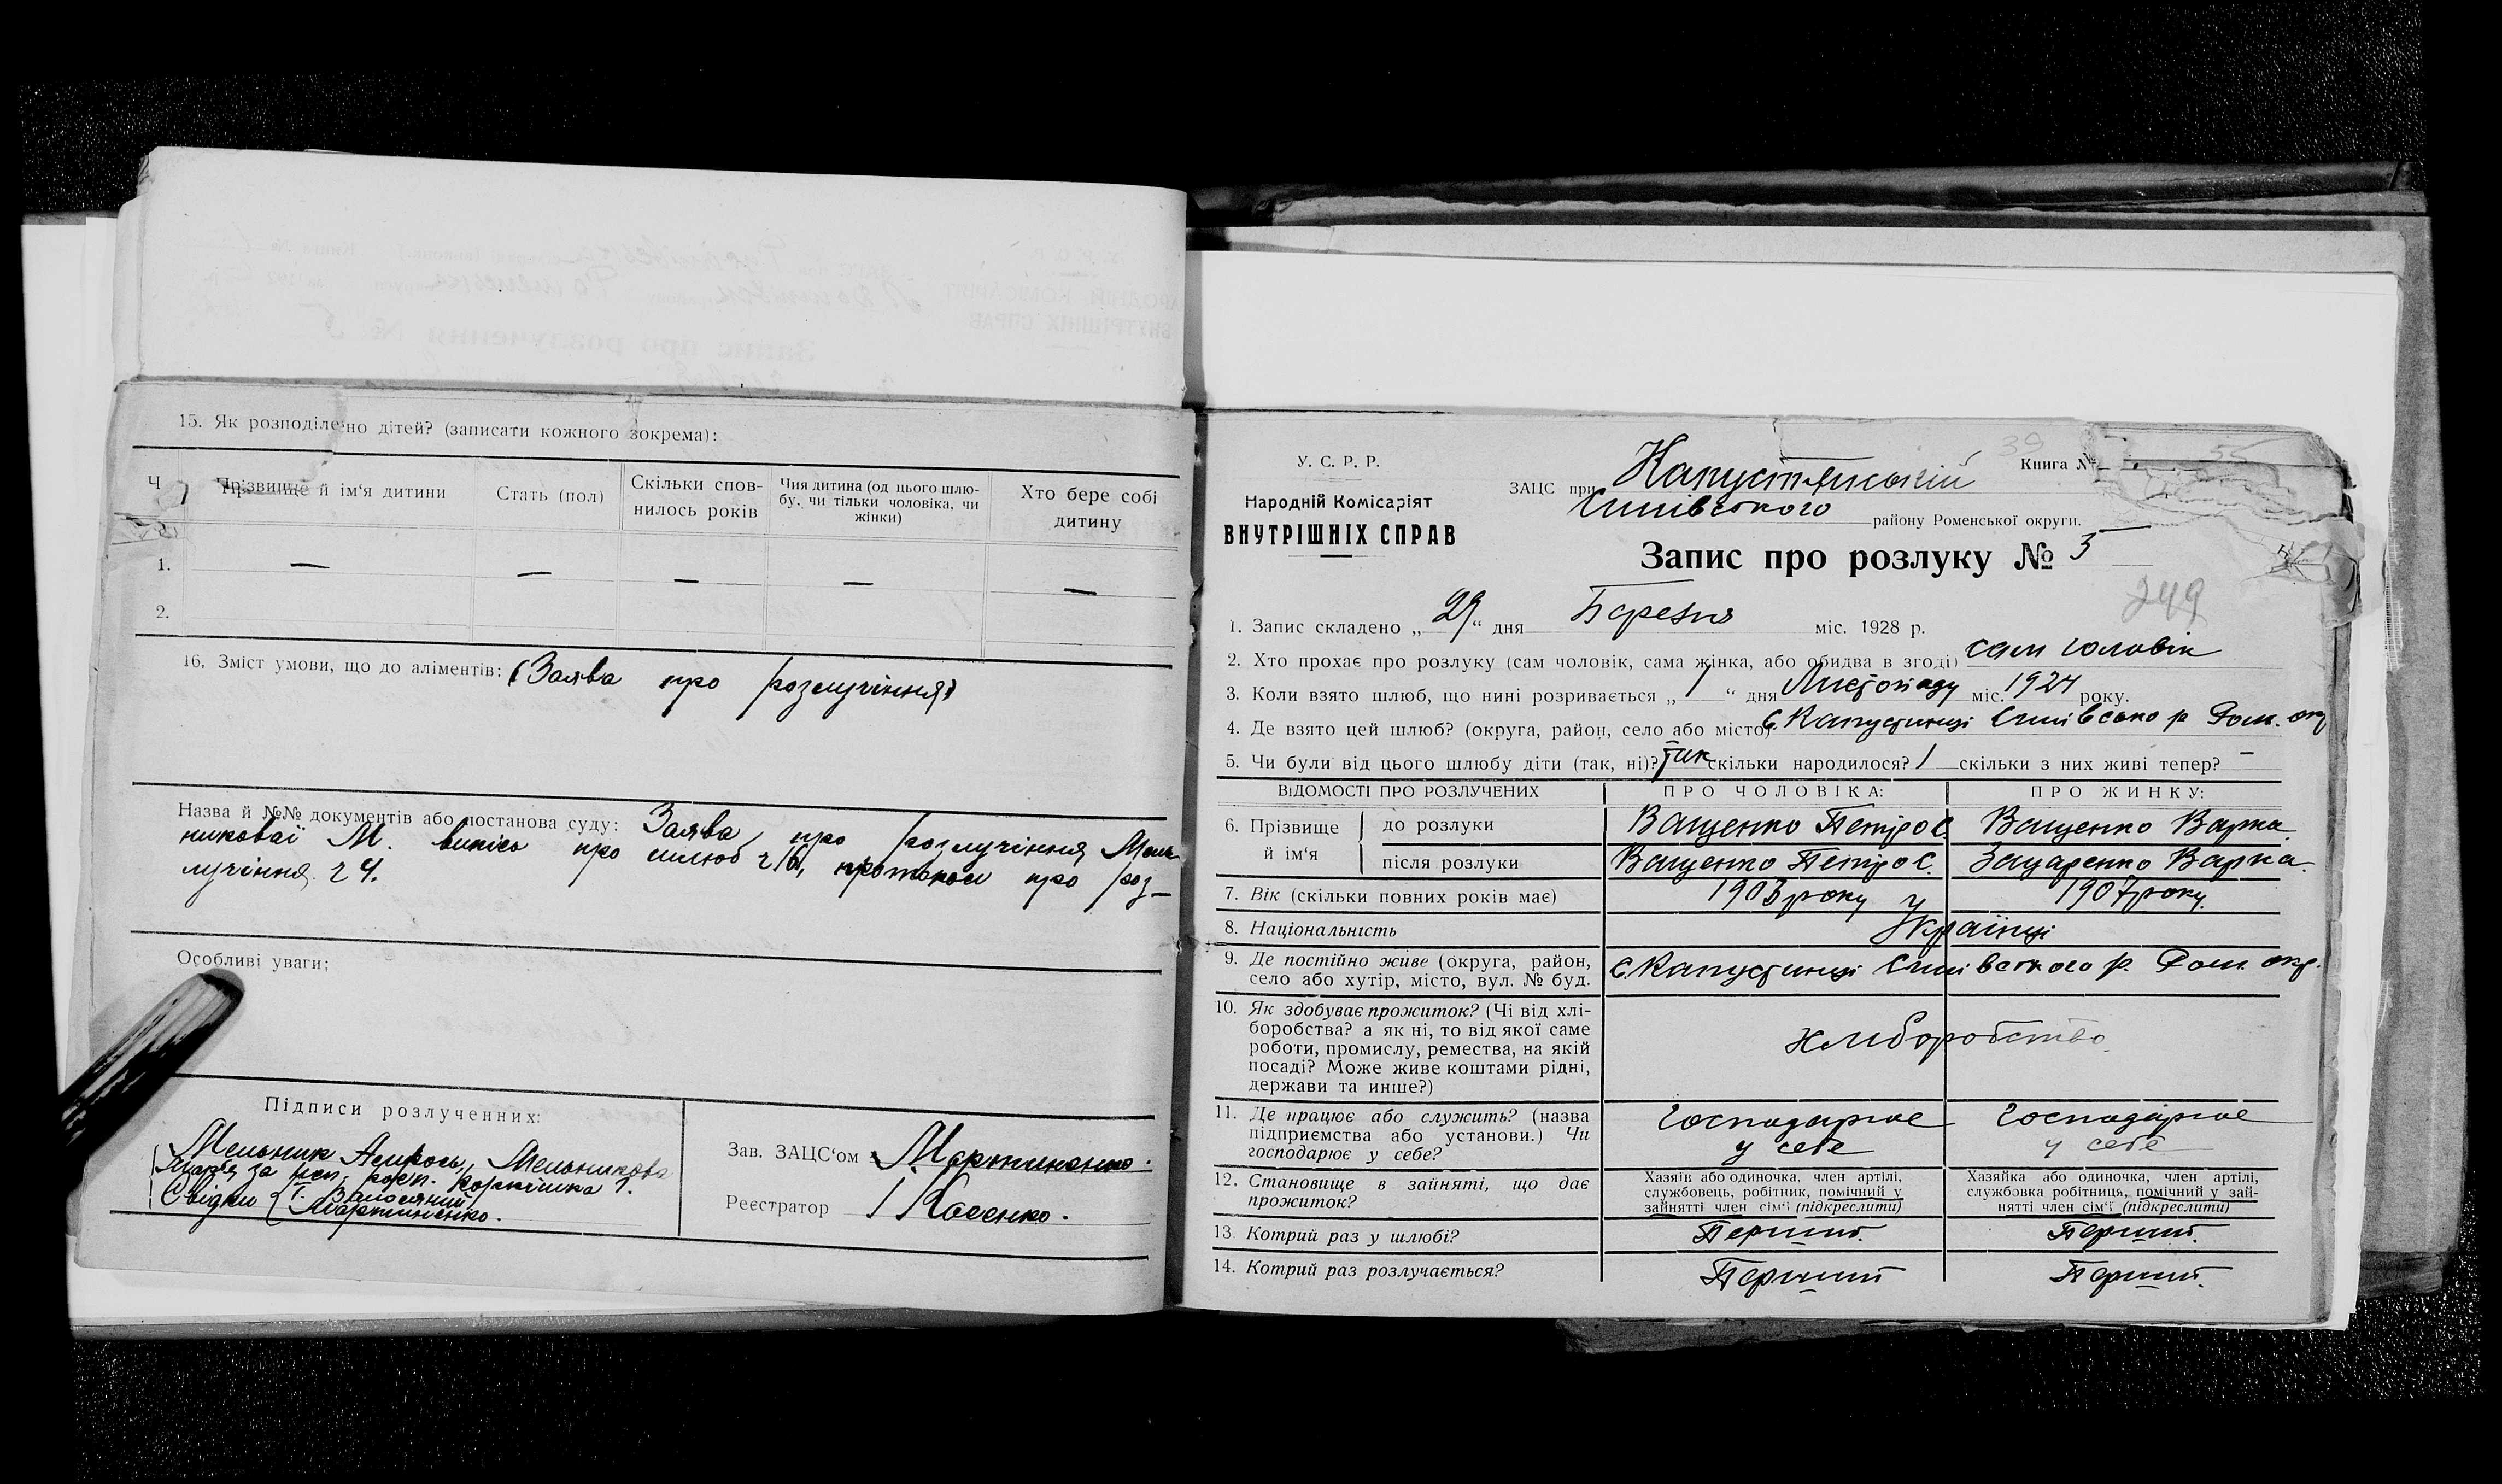 15. Як розподілено дітей? (записати кожного зокрема):
Ч
Прізвище й ім‘я дитини
Стать (пол)
Скільки спов-
нилось років
Чия дитина (од цього шлю-
бу, чи тільки чоловіка, чи
жінки)
Хто бере собі
дитину
1. — — — — —
2.
16. Зміст умови, що до аліментів: (Заява про розлучіння)
Назва й №№ документів або постанова суду: Заява про розлучіння Мель-
никової М. випись про шлюб ч 16, протокол про роз-
лучіння ч 4.
Особливі уваги;
Підписи розлученних:
Мельник Амбрось, Мельникова
Марія за неп. розп.
Свідки
Мартиненко.
Зав. ЗАЦС‘ом Мартиненко.
Реєстратор Косенко.
У. С. Р. Р.
Народній Комісаріят
ВНУТРІШНІХ СПРАВ
39
Книга №
ЗАЦС при Капустянській
Синівського району Роменської округи.
Запис про розлуку № 5
249
1. Запис складено „29“ дня Березня міс. 1928 р.
2. Хто прохає про розлуку (сам чоловік, сама жінка, або обидва в згоді) сам чоловік
3. Коли взято шлюб, що нині розривається „1“ дня Листопаду міс. 1924 року.
4. Де взято цей шлюб? (округа, район, село або місто) С. Капустинці Синівсько р Ром. окр
5. Чи були від цього шлюбу діти (так, ні)? так скільки народилося? 1 скільки з них живі тепер? —
ВІДОМОСТІ ПРО РОЗЛУЧЕНИХ
ПРО ЧОЛОВІКА:
ПРО ЖИНКУ:
6. Прізвище
й ім‘я
до розлуки
Ващенко Петро С
Ващенко Варка
після розлуки
Ващенко Петро С.
Защаренко Варка.
7. Вік (скільки повних років має)
1903 року
1907 року.
8. Національність
Українці
9. Де постійно живе (округа, район,
село або хутір, місто, вул. № буд.
С. Капустинці Синівського р. Ром. окр.
10. Як здобуває прожиток? (Чі від хлі-
боробства? а як ні, то від якої саме
роботи, промислу, ремества, на якій
посаді? Може живе коштами рідні,
держави та инше?)
хліборобство
11. Де працює або служить? (назва
підприємства або установи.) Чи
господарює у себе?
Господарює
у себе
Господарює
у себе
12. Становище в зайняті, що дає
прожиток?
Хазяїн або одиночка, член артілі,
службовець, робітник, помічний у
зайнятті член сім‘ї (підкреслити)
Хазяйка або одиночка, член артілі,
службовка робітниця, помічний у зай-
нятті член сім‘ї (підкреслити)
13. Котрий раз у шлюбі?
Перший.
Перший.
14. Котрий раз розлучається?
Перший
Перший.